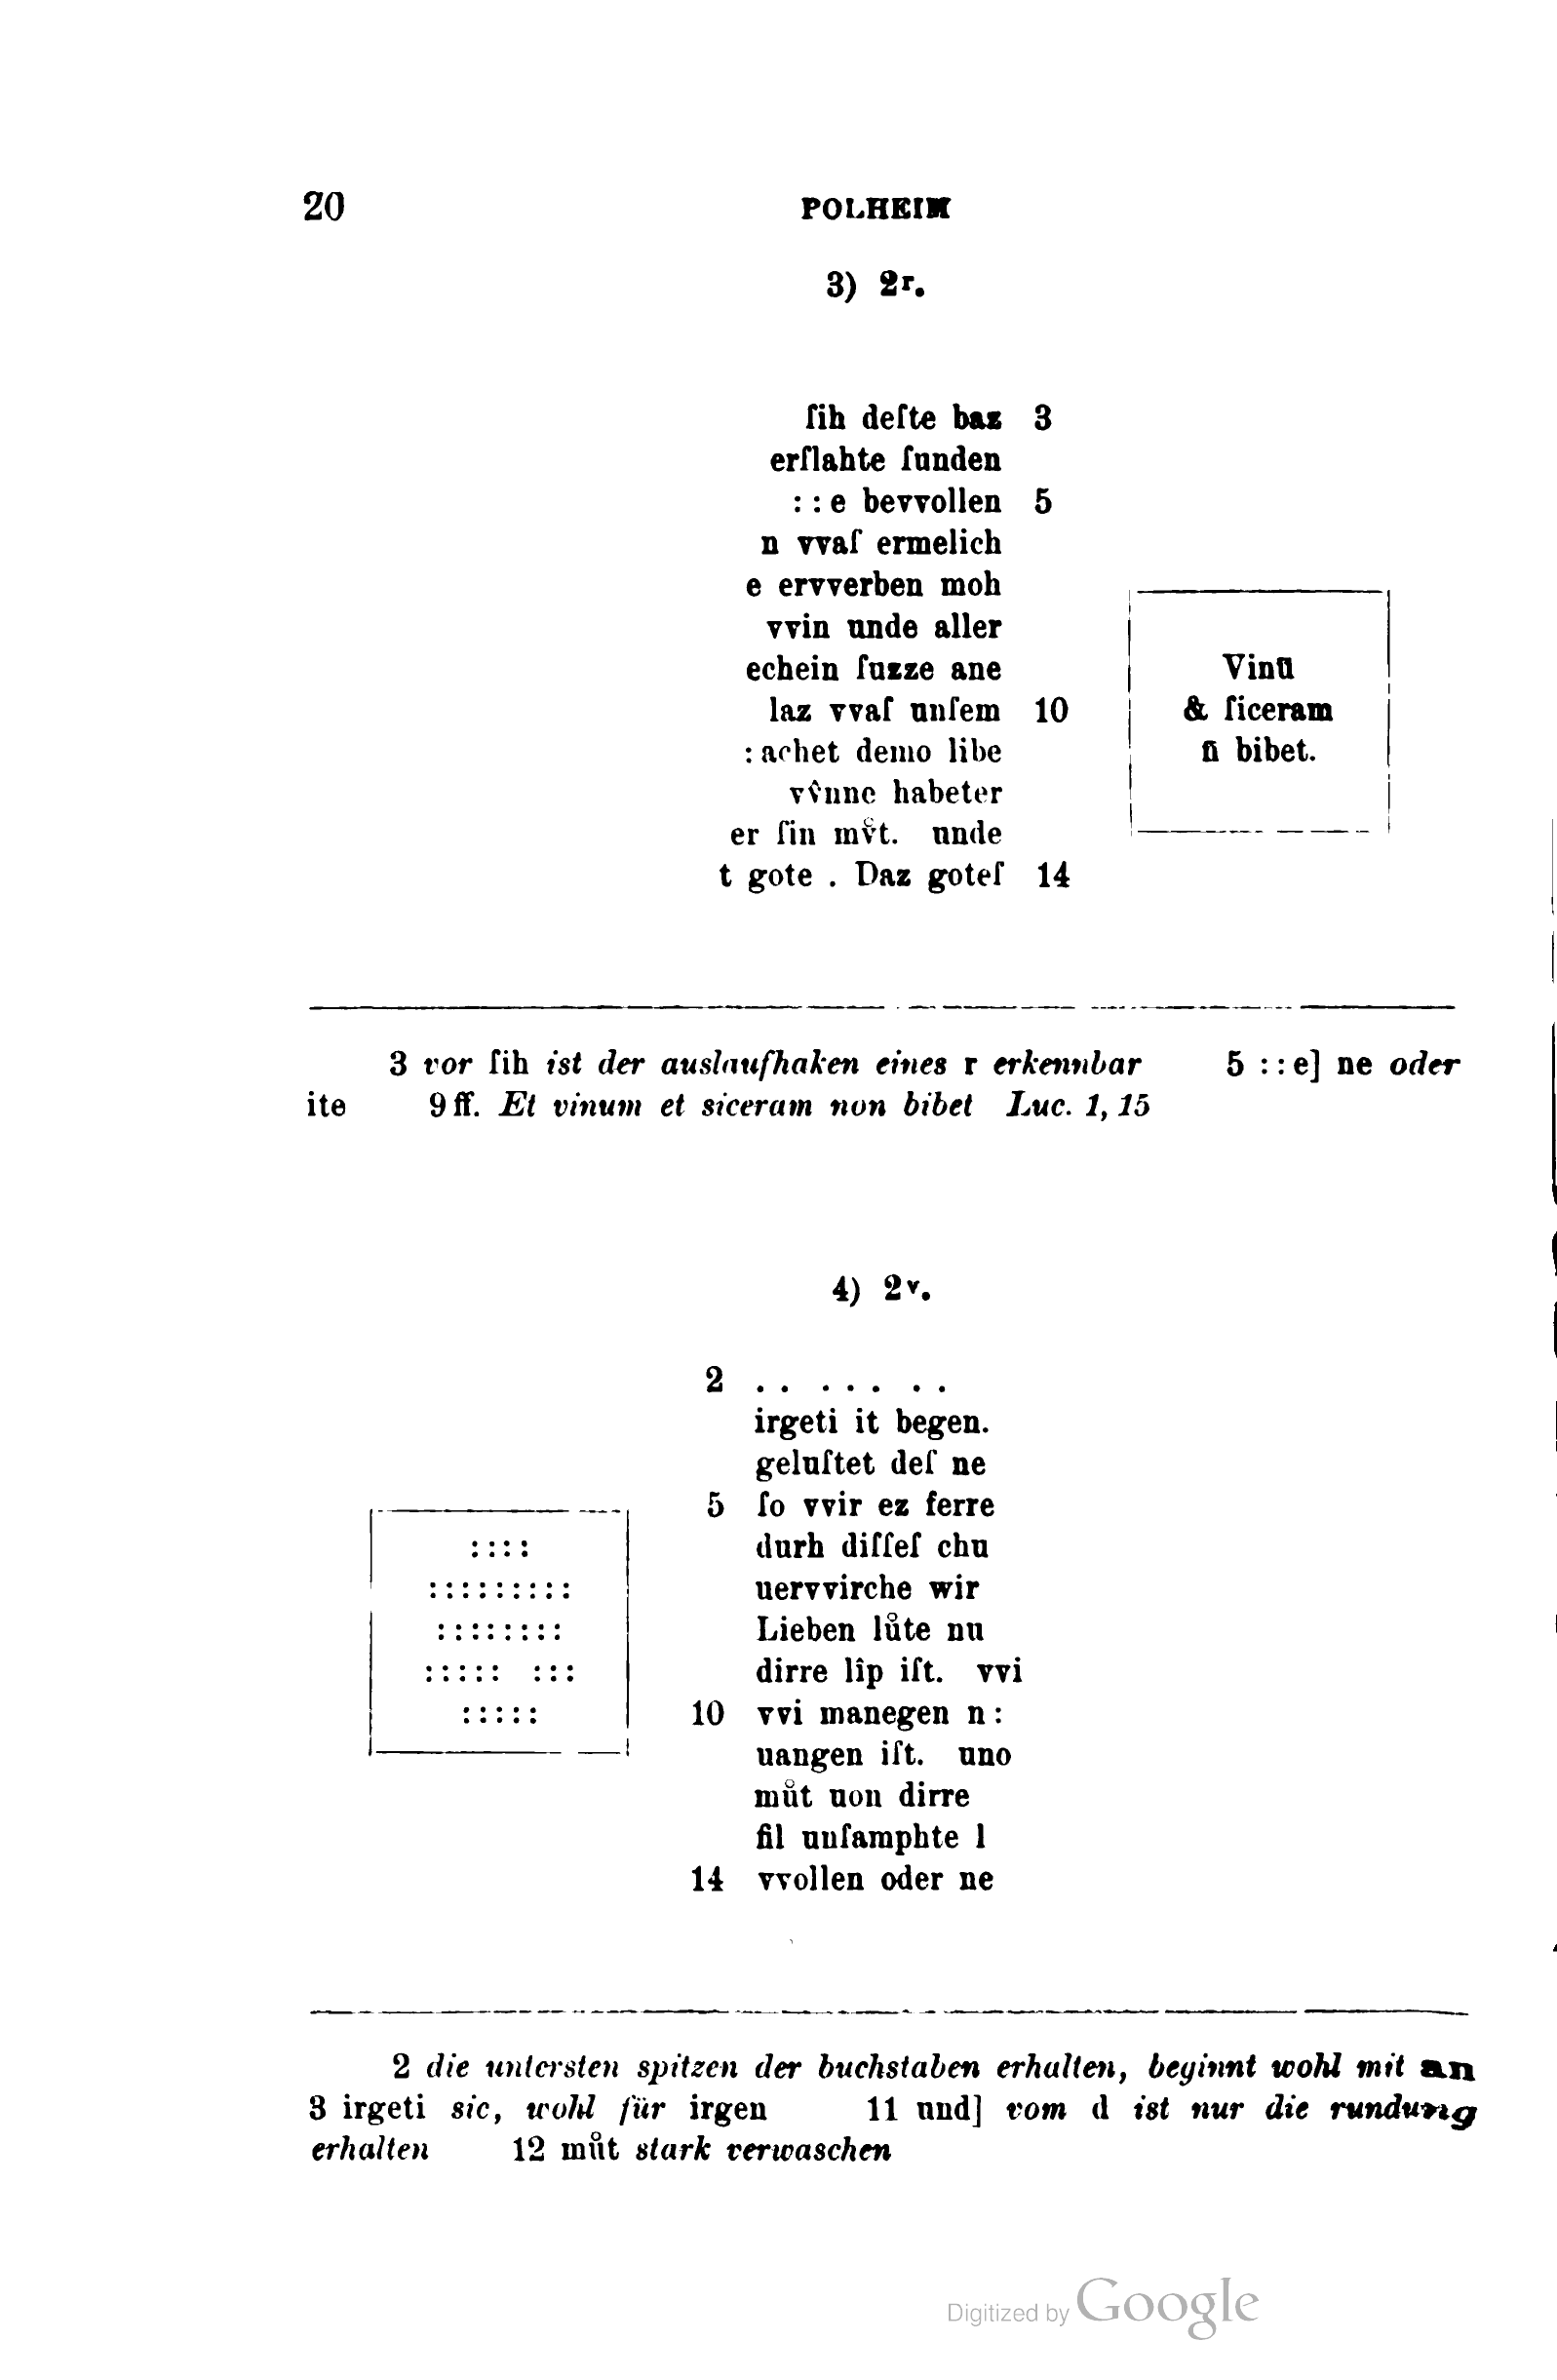 20 POLHEIM
3) 2r.
ſih deſte baz 3
erſlahte ſunden
::e bevvollen 5
n vvaſ ermelich
e ervverben moh
vvin unde aller
echein ſuzze ane
laz vvaſ unſem 10
:achet demo libe
vv̂nne habeter
er ſin mv̊t. unde
t gote . Daz goteſ 14
Vinū
& ſiceram
n̄ bibet.
3 vor ſih ist der auslaufhaken eines r erkennbar 5 ::e] ne oder
ite 9ff. Et vinum et siceram non bibet Luc. 1, 15
4) 2v.
2 .. ... ..
irgeti it begen.
geluſtet deſ ne
5 ſo vvir ez ferre
durh diſſeſ chu
uervvirche wir
Lieben lůte nu
dirre lîp iſt. vvi
10 vvi manegen n:
uangen iſt. uno
můt uon dirre
fil unſamphte l
14 vvollen oder ne
::::
:::::::::
::::::::
::::: :::
:::::
2 die untersten spitzen der buchstaben erhalten, beginnt wohl mit an
3 irgeti sic, wohl für irgen 11 und] vom d ist nur die rundung
erhalten 12 můt stark verwaschen
Digitized by Google